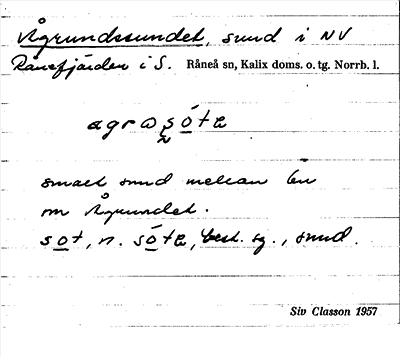 Ågrundssundet, sund i NV
Rånefjärden i S. Råneå sn, Kalix doms. o. tg. Norrb. l.
agrɷsóta
smalt sund mellan ön
om Ågrundet.
sot, n. sóta, best. sg., sund.
Siv Classon 1957